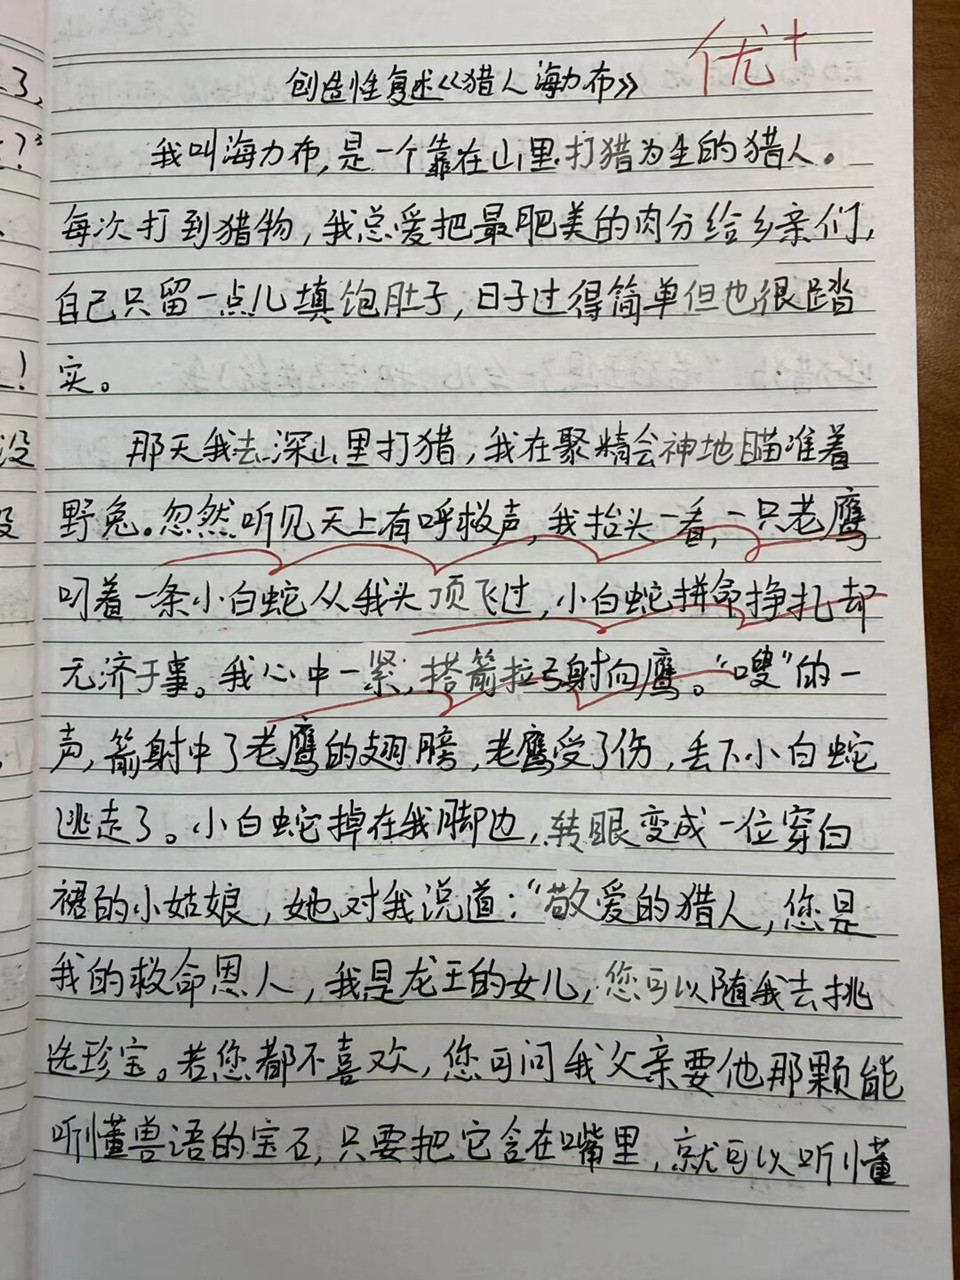 优+
创造性复述《猎人海力布》
我叫海力布，是一个靠在山里打猎为生的猎人。
每次打到猎物，我总爱把最肥美的肉分给乡亲们，
自己只留一点儿填饱肚子，日子过得简单但也很踏
实。
那天我去深山里打猎，我在聚精会神地瞄准着
野兔。忽然听见天上有呼救声，我抬头一看，一只老鹰
叼着一条小白蛇从我头顶飞过，小白蛇拼命挣扎却
无济于事。我心中一紧，搭箭拉弓射向鹰。“嗖”的一
声，箭射中了老鹰的翅膀，老鹰受了伤，丢下小白蛇
逃走了。小白蛇掉在我脚边，转眼变成一位穿白
裙的小姑娘，她对我说道：“敬爱的猎人，您是
我的救命恩人，我是龙王的女儿，您可以随我去挑
选珍宝。若您都不喜欢，您可问我父亲要他那颗能
听懂兽语的宝石，只要把它含在嘴里，就可以听懂